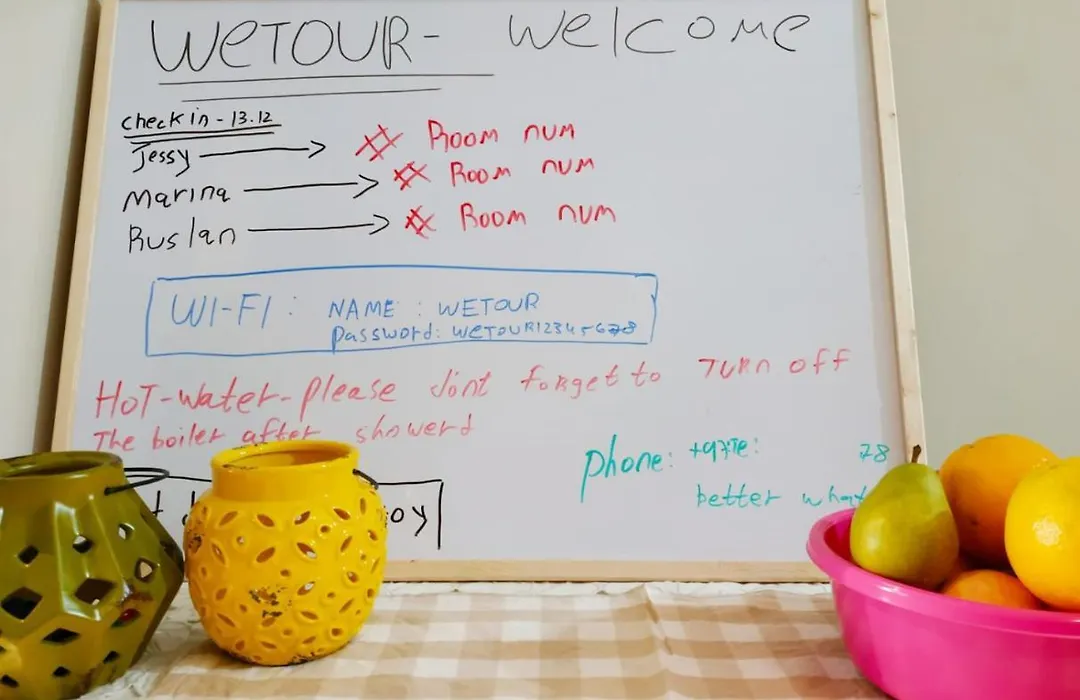 WETOUR- WELCOME
Check in - 13.12
Jessy → # Room num
Marina → # Room num
Ruslan → # Room num
WI-FI: NAME: WETOUR
password: WETOUR12345678
HOT-water-please dont forget to TURN off
The boiler after showerd
phone: 78
better
oy